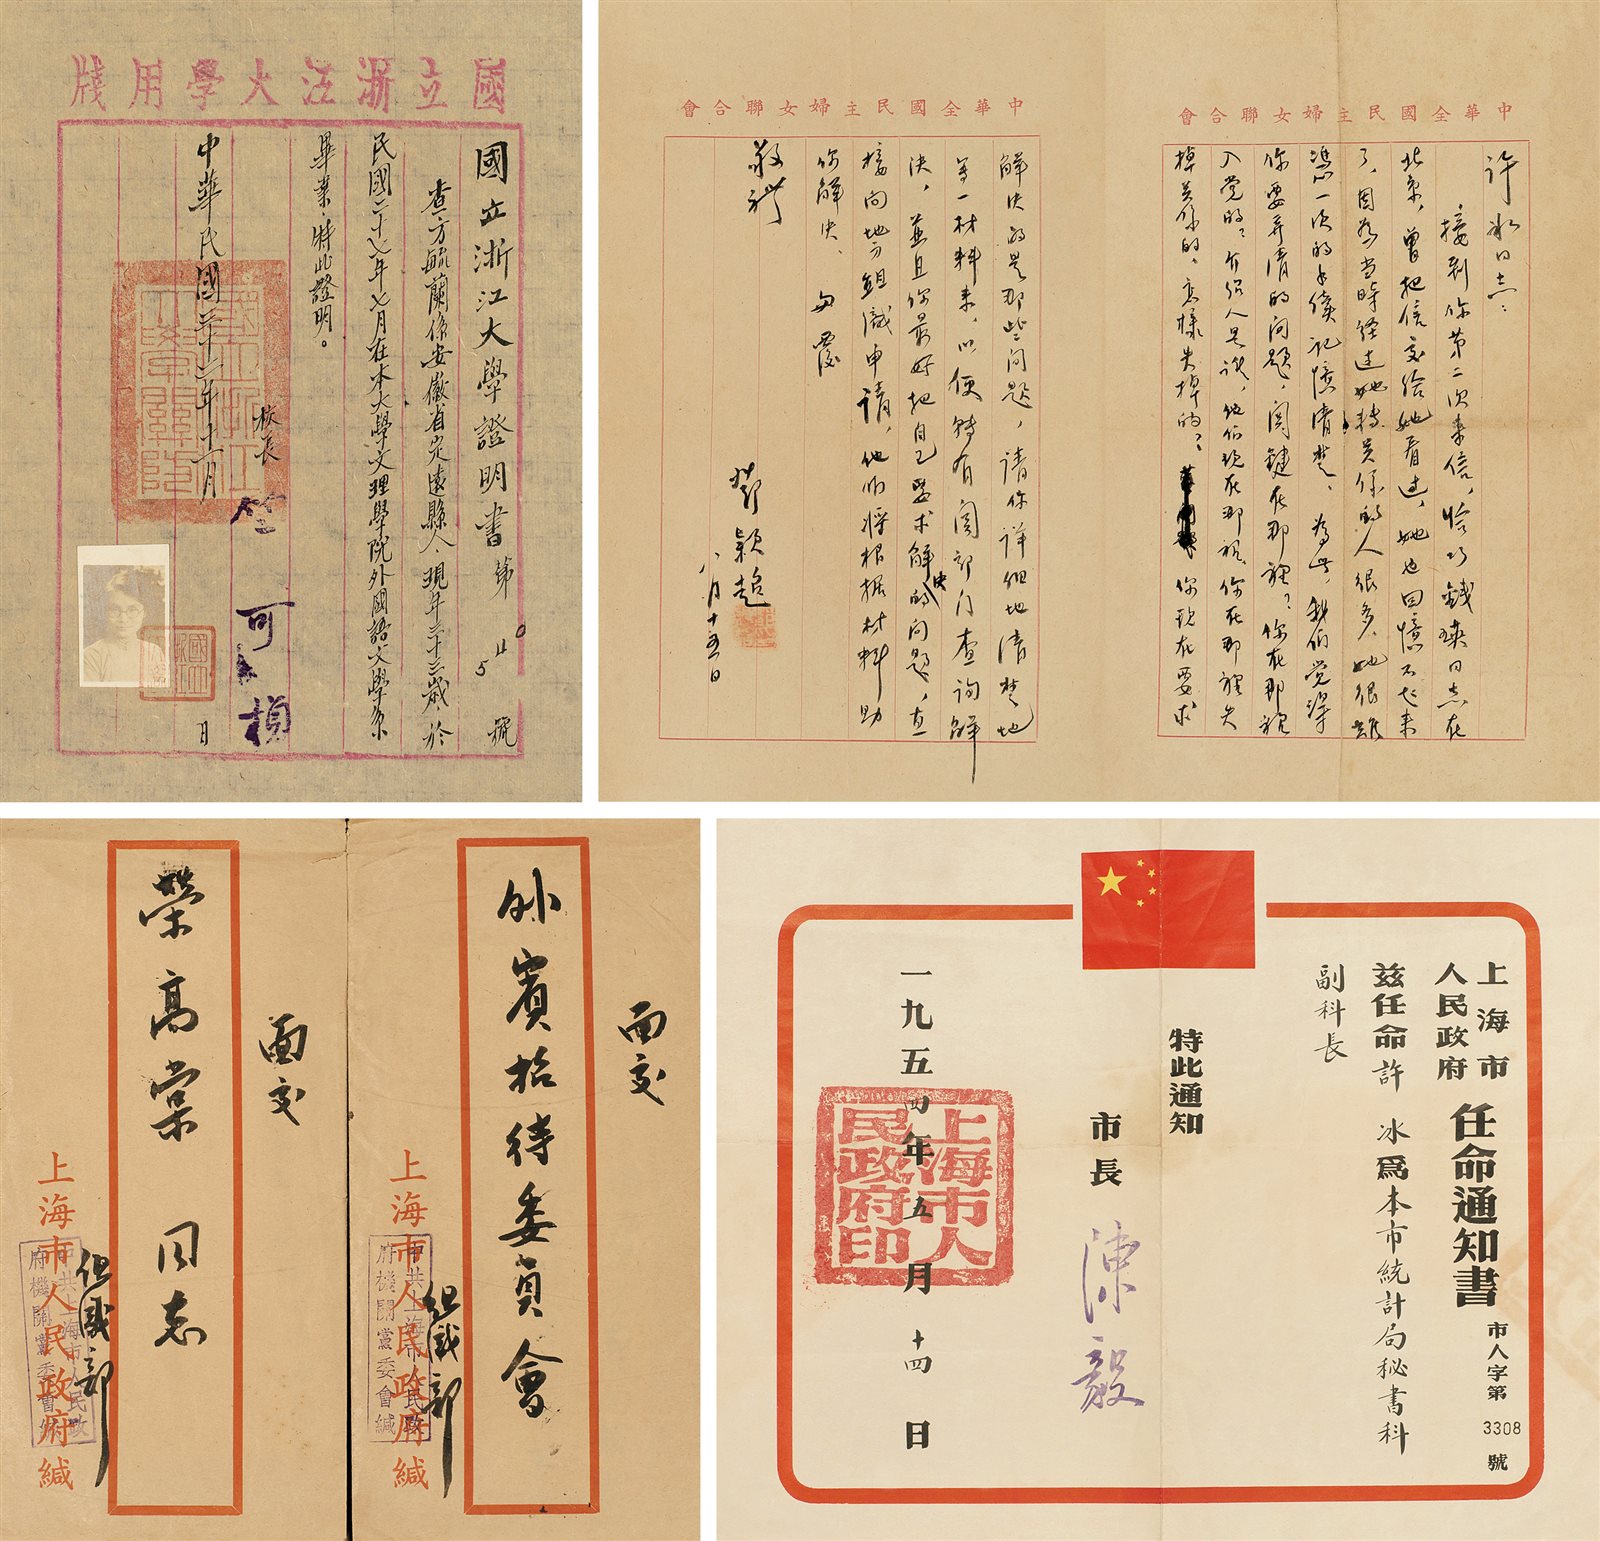 國立浙江大學用牋
國立浙江大學證明書 第 號
查方毓蘭係安徽省定遠縣人、現年三十三歲於
民國二十七年七月在本大學文理學院外國語文學系
畢業、特此證明。
校長 竺可楨
中華民國三十二年十一月 日
中華全國民主婦女聯合會
許冰同志：
接到你第二次来信，恰巧錢瑛同志在
北京，曾把信交给她看过，她也回憶不起来
了，因为当時经过她轉关係的人很多，她很难
憑一次的手续記憶清楚，為此，我们觉得
你要弄清的问题，関鍵在那裡？你在那裡
入党的？介绍人是谁，他们现在那裡，你在那裡失
掉关係的，怎樣失掉的？你现在要求
中華全國民主婦女聯合會
解决的是那些问题，請你详细地清楚地
写一材料来，以便转有関部门查询解
决，並且你最好把自己要求解决的问题，直
接向地方組織申請，他们将根据材料助
你解决、 匆覆
敬礼
鄧穎超
八月十五日
面交
外賓招待委員會
上海市人民政府緘
组織部
中共上海市人民政
府機關黨委會緘
面交
榮高棠 同志
上海市人民政府緘
组織部
中共上海市人民政
府機關黨委會緘
上海市
人民政府 任命通知書 市人字第 3308 號
茲任命許 冰為本市統計局秘書科
副科長
特此通知
市長 陳毅
一九五四年五月十四日
上海市人
民政府印